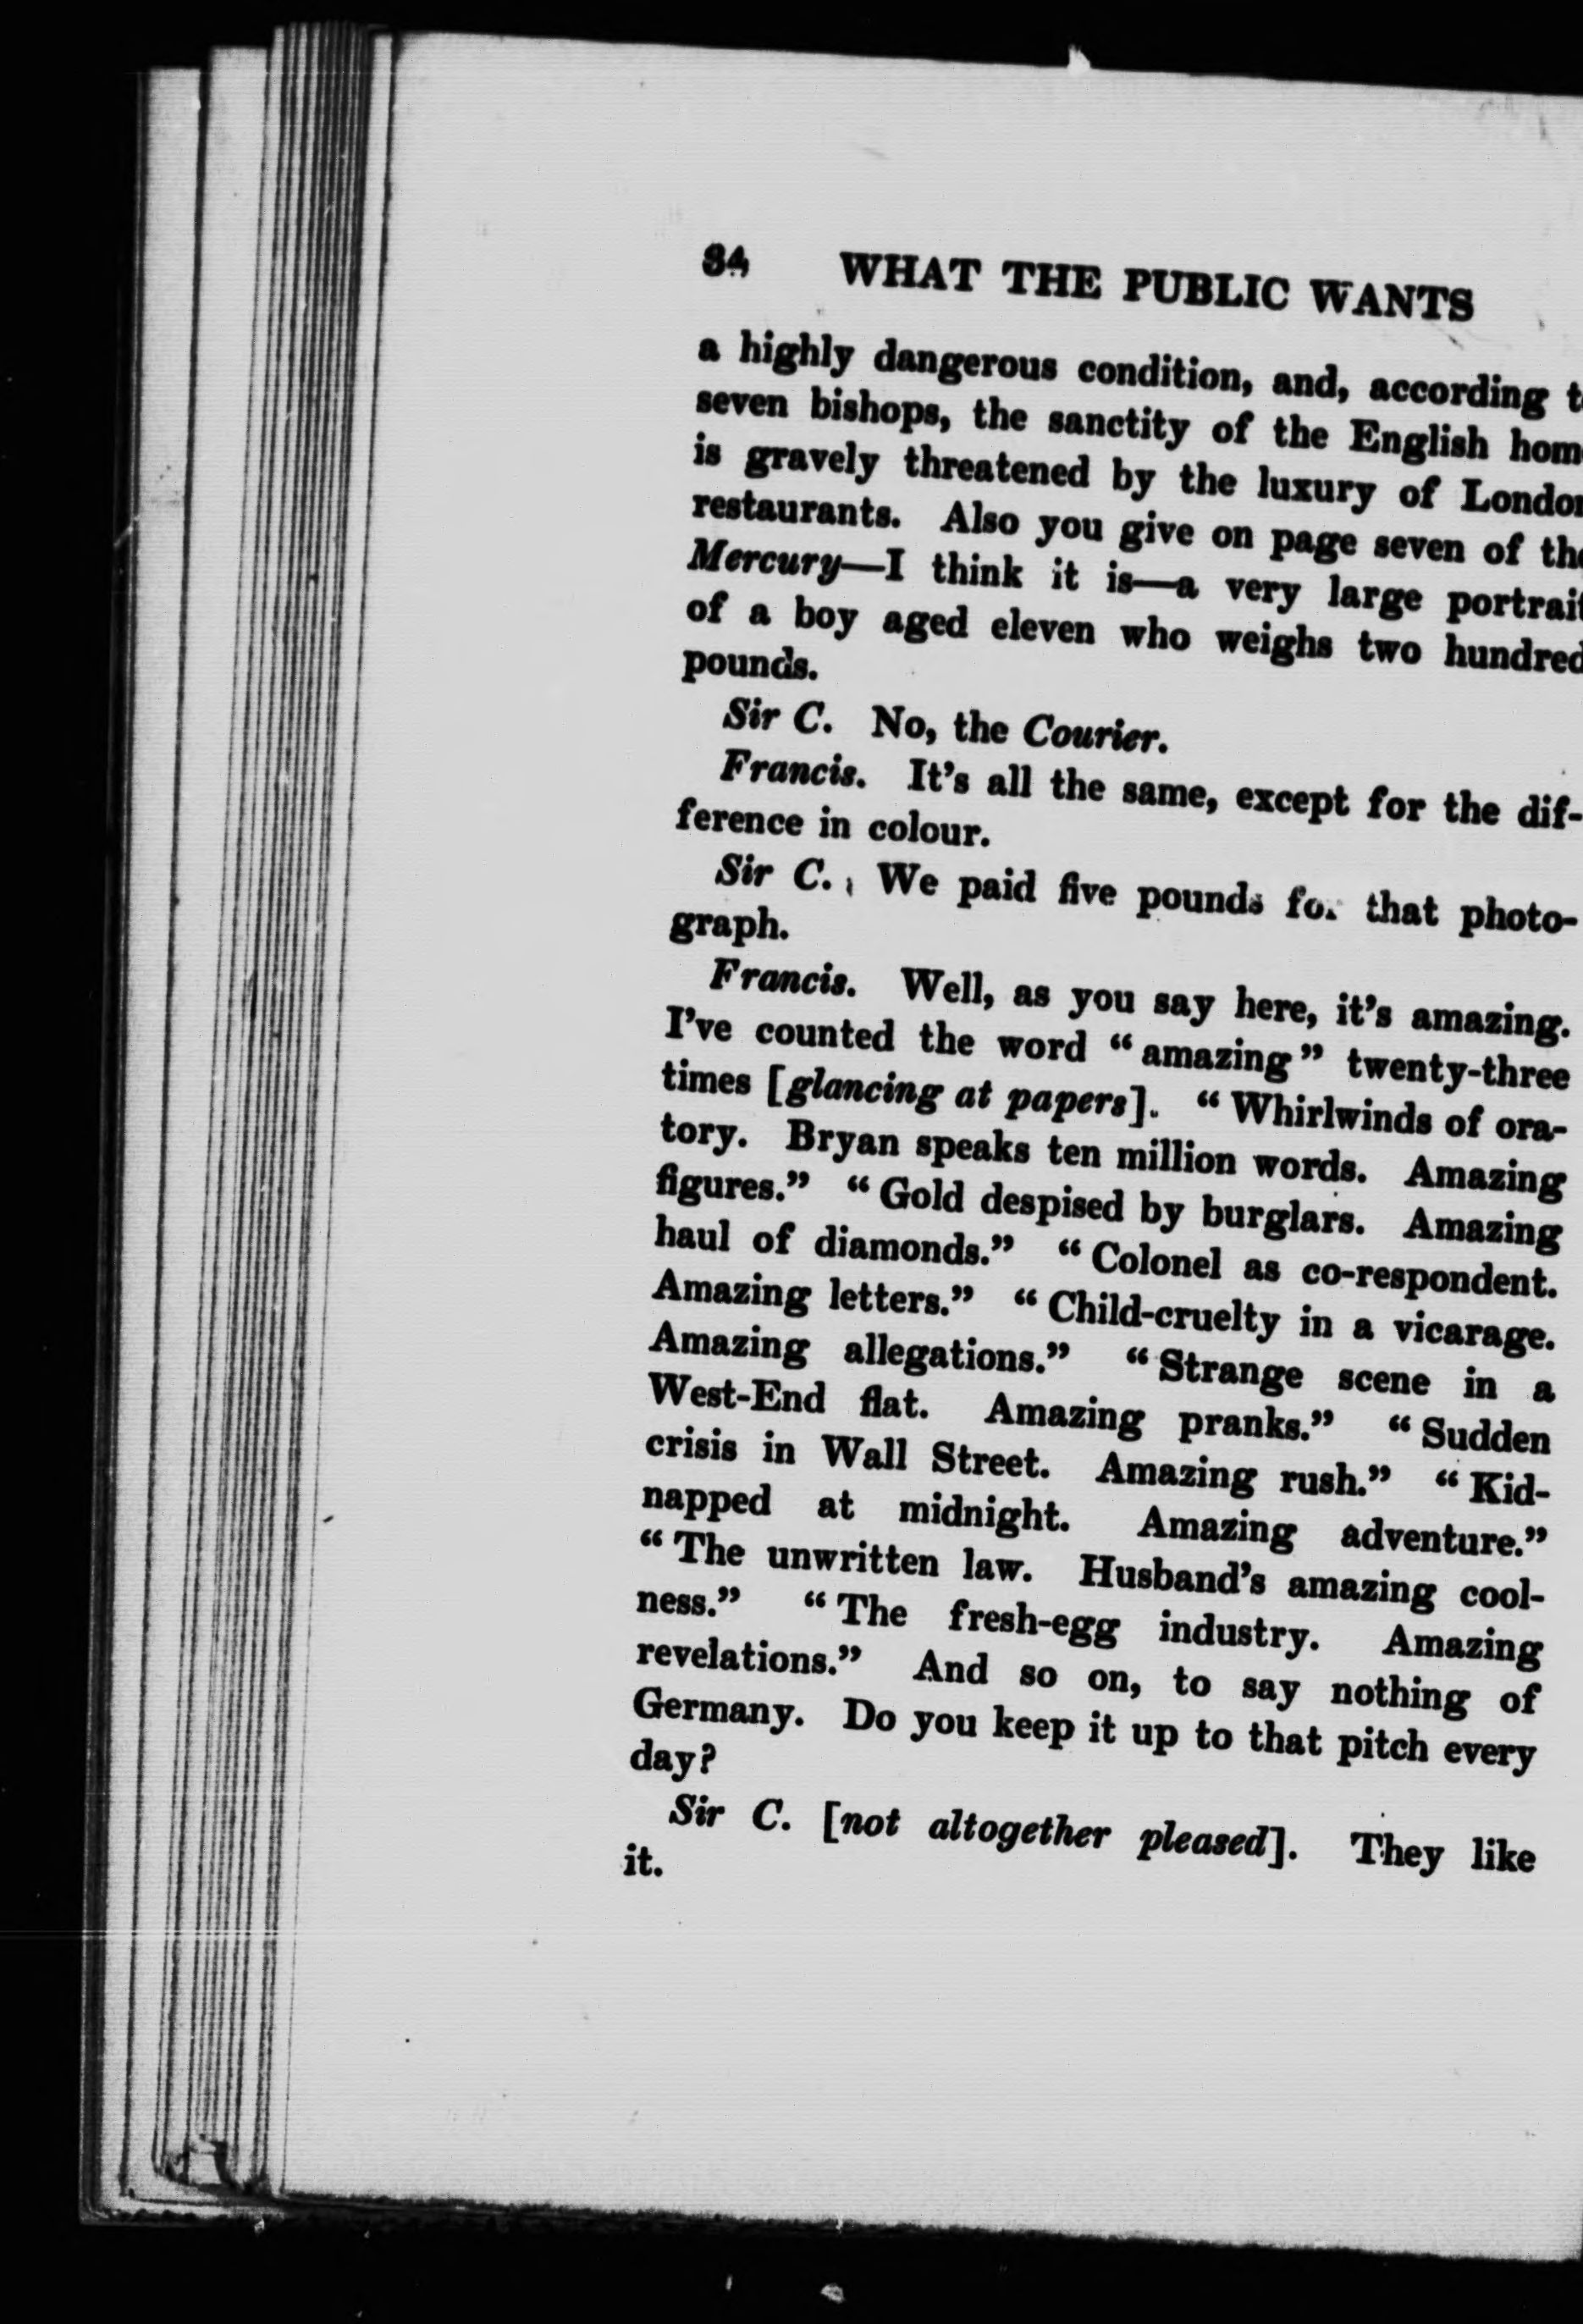 34 WHAT THE PUBLIC WANTS
a highly dangerous condition, and, according
seven bishops, the sanctity of the English
is gravely threatened by the luxury of London
restaurants. Also you give on page seven of the
Mercury—I think it is—a very large portrait
of a boy aged eleven who weighs two hundred
pounds.
Sir C. No, the Courier.
Francis. It's all the same, except for the dif-
ference in colour.
Sir C. We paid five pounds for that photo-
graph.
Francis. Well, as you say here, it's amazing.
I've counted the word “amazing” twenty-three
times [glancing at papers]. “Whirlwinds of ora-
tory. Bryan speaks ten million words. Amazing
figures.” “Gold despised by burglars. Amazing
haul of diamonds.” “Colonel as co-respondent.
Amazing letters.” “Child-cruelty in a vicarage.
Amazing allegations.” “Strange scene in a
West-End flat. Amazing pranks.” “Sudden
crisis in Wall Street. Amazing rush.” “Kid-
napped at midnight. Amazing adventure.”
“The unwritten law. Husband's amazing cool-
ness.” “The fresh-egg industry. Amazing
revelations.” And so on, to say nothing of
Germany. Do you keep it up to that pitch every
day?
Sir C. [not altogether pleased]. They like
it.